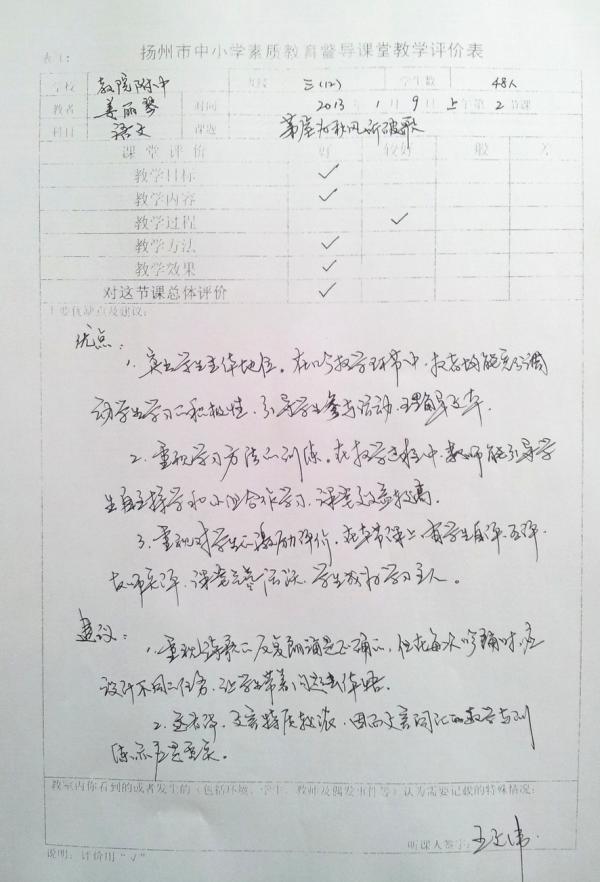 表1:
扬州市中小学素质教育督导课堂教学评价表
学校 教院附中 年级 三(12) 学生数 48人
教者 姜丽琴 时间 2013年1月9日上午第2节课
科目 语文 课题 茅屋为秋风所破歌
课堂评价 好 较好 一般 差
教学目标 ✓
教学内容 ✓
教学过程 ✓
教学方法 ✓
教学效果 ✓
对这节课总体评价 ✓
主要优缺点及建议:
优点:
1. 突出学生主体地位。在各教学环节中,教者均能充分调
动学生学习的积极性,引导学生参与活动,理解文本.
2. 重视学习方法的训练。在教学过程中,教师能引导学
生自主探学和小组合作学习,课堂效益较高.
3. 重视对学生的激励评价。在本节课上,有学生自评、互评、
教师点评,课堂气氛活跃,学生成为学习主人。
建议:
1. 重视诗歌的反复朗诵是正确的,但在每次吟诵时,应
设计不同的任务,让学生带着问题去体悟.
2. 文言特质较浓,因而文言词汇的教学与训
练亦应重实。
教室内你看到的或者发生的(包括环境、学生、教师及偶发事件等)认为需要记载的特殊情况:
听课人签字:
说明: 评价用“✓”